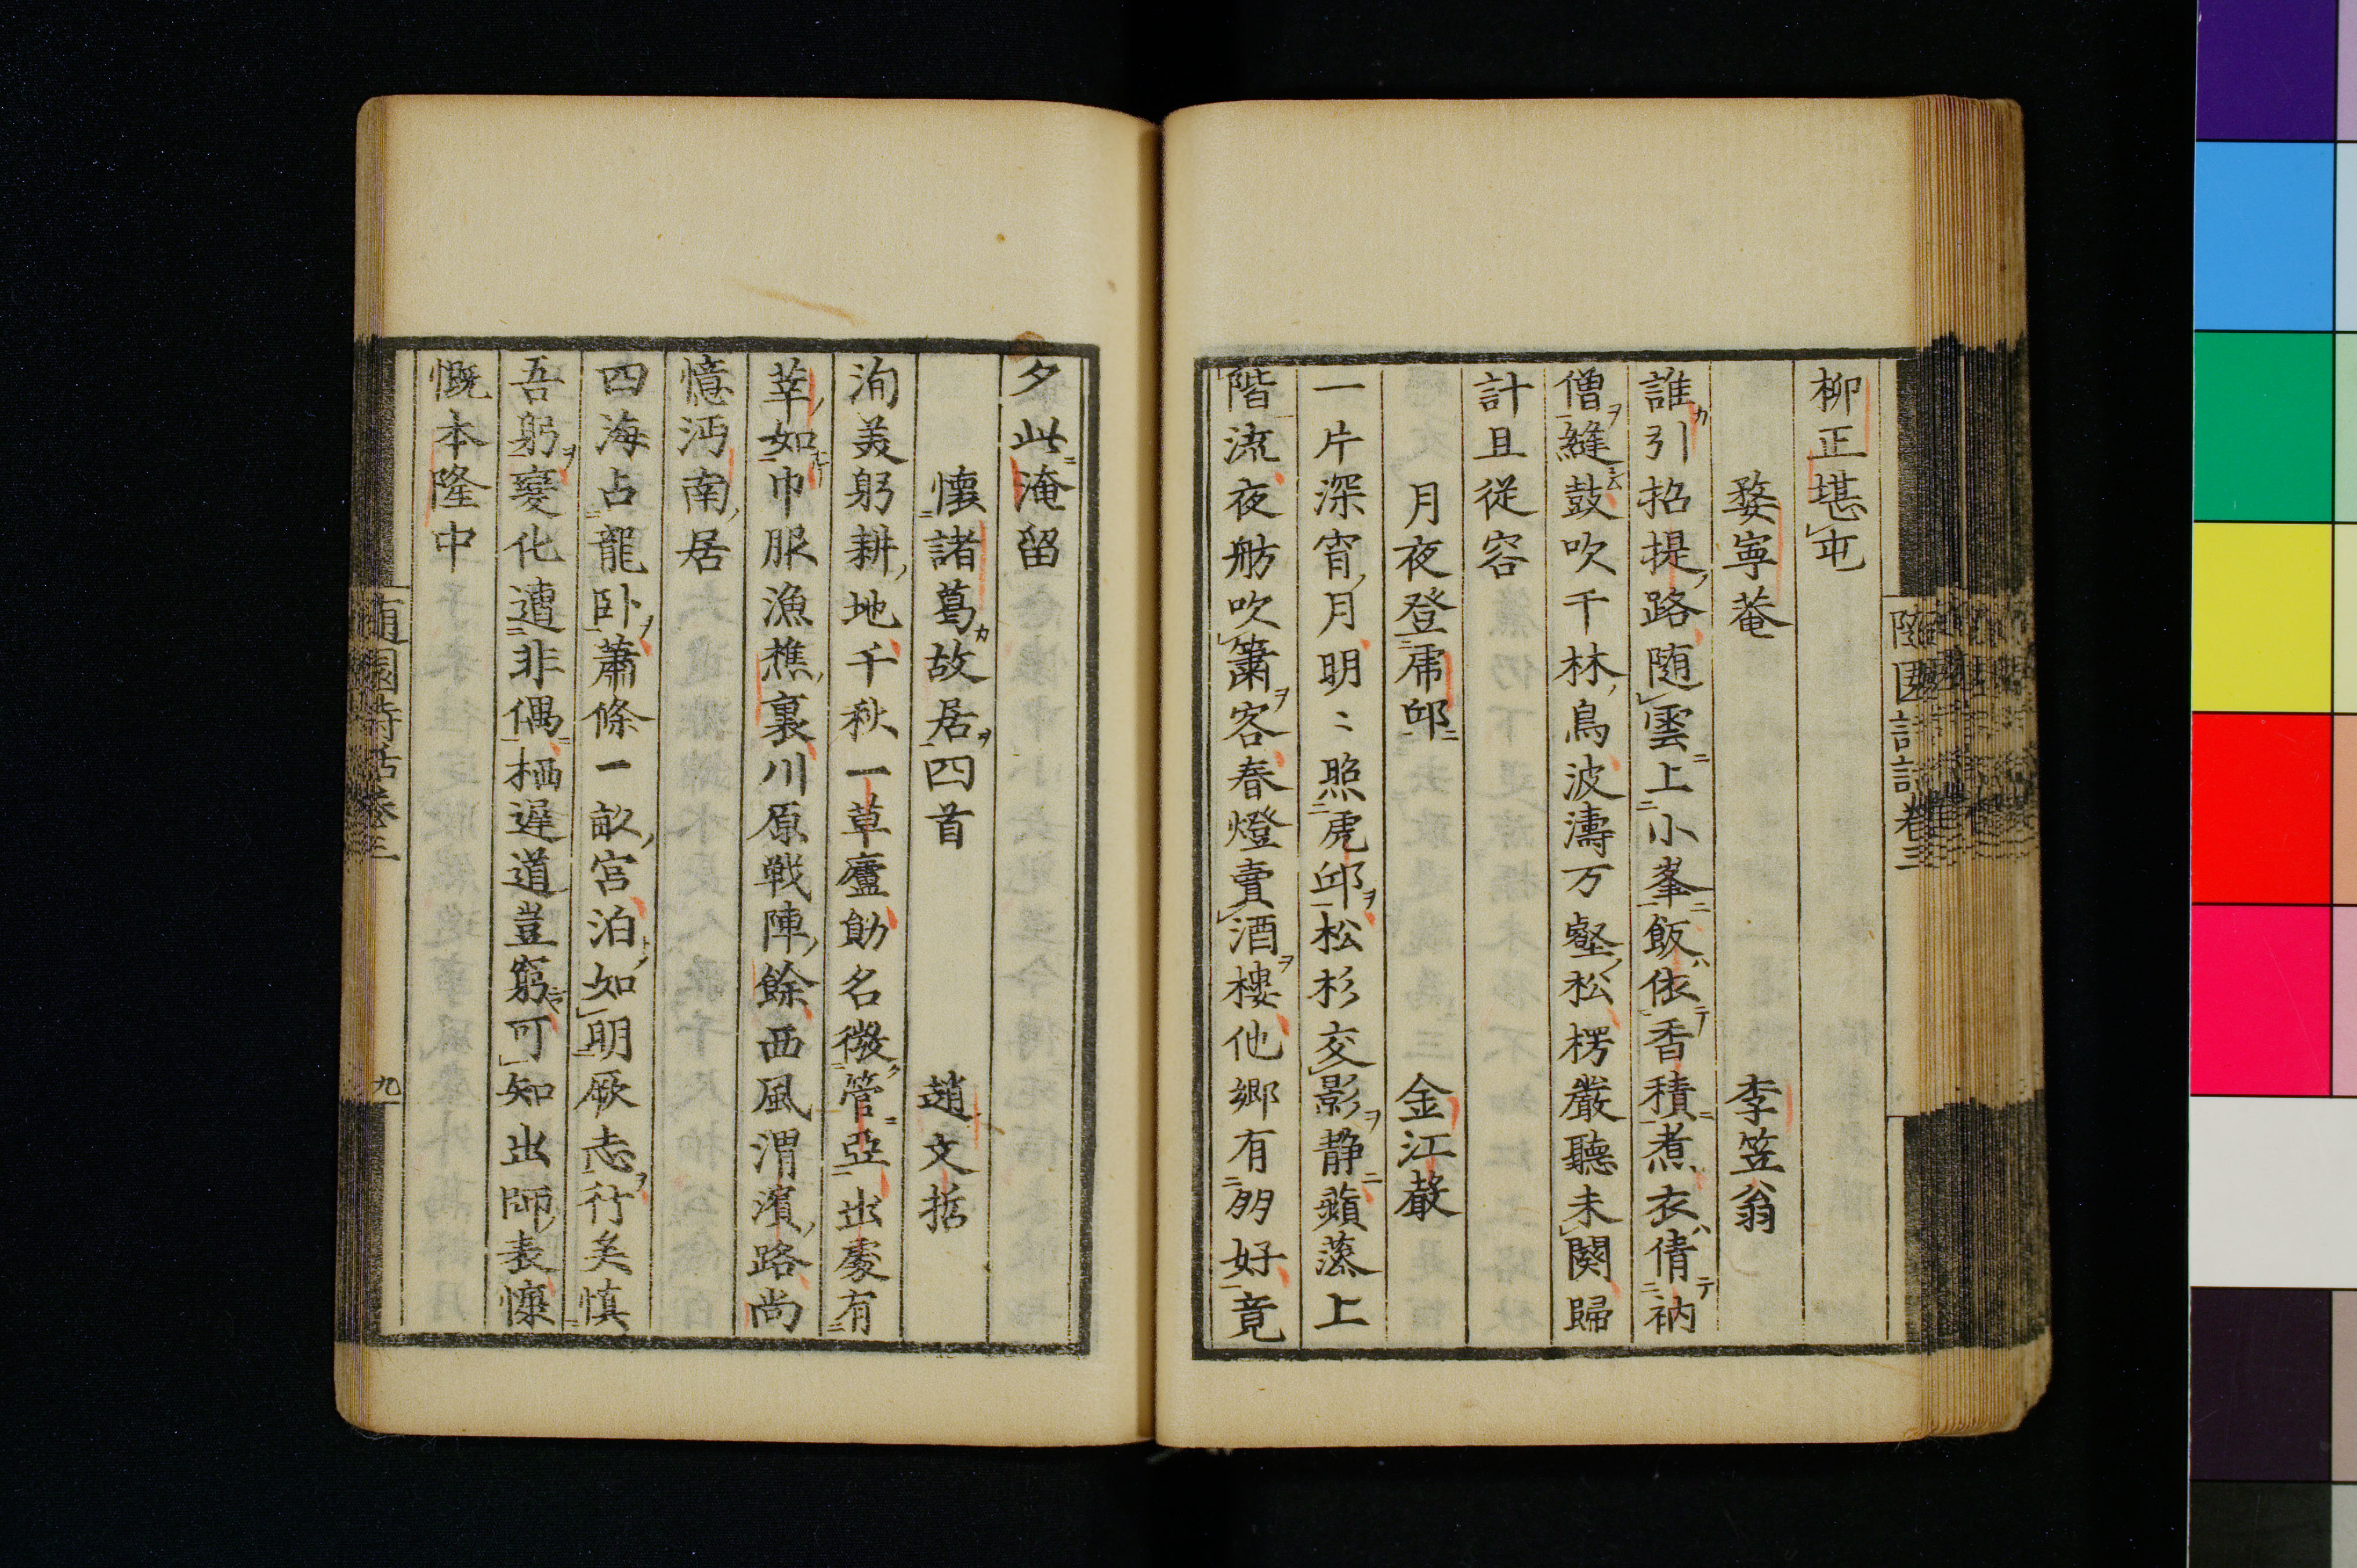 柳正堪屯
婺寧菴 李笠翁
誰引招提路随雲上小峯飯依香積煮衣倩衲
僧縫鼓吹千林鳥波濤万壑松楞嚴聽未闋歸
計且從容
月夜登虎邱 金江聲
一片深宵月明〻照虎邱松杉交影静蘋藻上
階流夜舫吹簫客春燈賣酒樓他郷有朋好竟
夕此淹留
懐諸葛故居四首 趙文哲
洵美躬耕地千秋一草廬勛名微管亞出處有
莘如巾服漁樵裏川原戦陣餘西風渭濱路尚
憶沔南居
四海占龍卧蕭條一畝宮泊如明厥志行矣慎
吾躬變化遭非偶栖遅道豈窮可知出師表慷
慨本隆中
随園詩話巻三
九